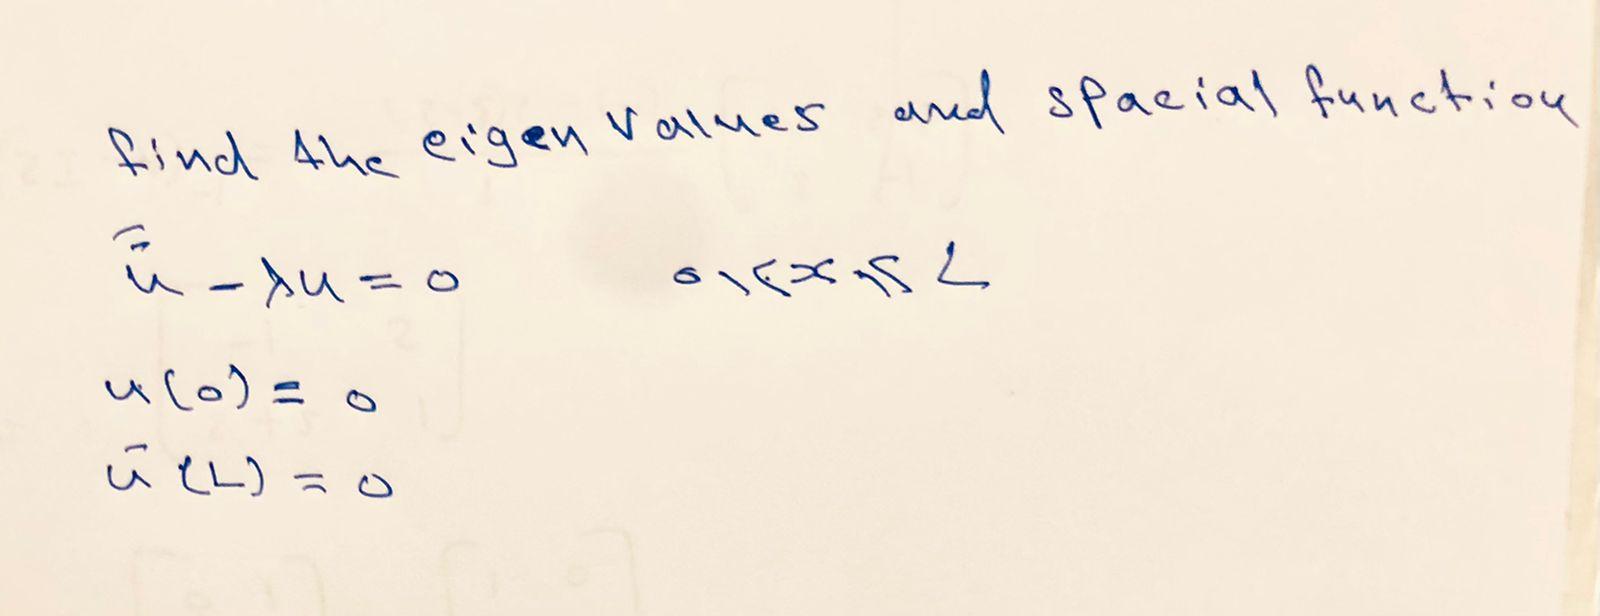 find the eigen values and spacial function
u̿ - λu = 0 0 ≤ x ≤ L
u(0) = 0
ū(L) = 0